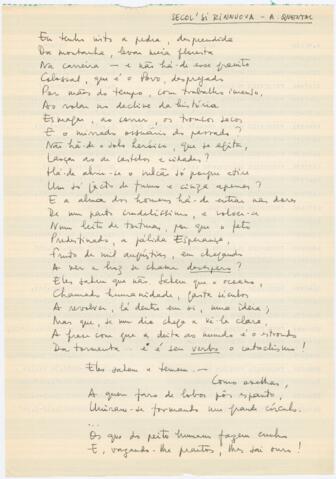 SECOL' SI RINNUOVA - A. QUENTAL
Eu tenho visto a pedra, desprendida
Da montanha, levar meia floresta
Na carreira — e não há-de esse granito
Colossal, que é o Povo, despregado
Por mãos do tempo, com trabalho imenso,
Ao rolar no declive da história
Esmagar, ao correr, os troncos secos
E o mirrado ossuário do passado?
Não há-de o solo heróico, que se agita,
Lanças ao ar de castelos e cidades?
Há-de abrir-se o vulcão só porque atire
Um só jacto de fumo e cinza apenas?
E a alma dos homens há-de entrar nas dores
De um parto crudelíssimo, e volver-se
Num leito de torturas, por que o feto
Predestinado, a pálida Esperança,
Fruto de mil angústias, em chegando
A ver a luz se chame desespero?
Eles sabem que não sabem que o oceano,
Chamado humanidade, gasta séculos
A revolver, lá dentro em si, uma ideia;
Mas que, se um dia chega a vê-la clara,
A frase com que a deita ao mundo é o estrondo
Da tormenta — e é seu verbo o cataclismo!
Eles sabem e temem. —
Como ovelhas,
A quem faro de lobos pôs espanto,
Uniram-se formando um grande círculo.
...
Os que do peito humano fazem cunho
E, vazando-lhe prantos, lhes sai ouro!